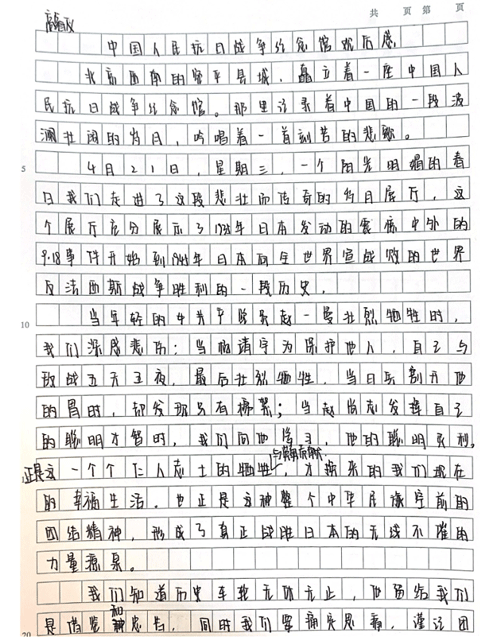 共 页 第 页
中国人民抗日战争纪念馆观后感
北京西南的宛平县城，矗立着一座中国人
民抗日战争纪念馆。那里记录着中国的一段波
澜壮阔的岁月，吟唱着一首刻苦的悲歌。
5
4月21日，星期三，一个阳光明媚的春
日我们走进了这段悲壮而传奇的岁月展厅，这
个展厅充分展示了1931年日本发动的震痛中外的
9.18事件开始到1945年日本向全世界宣战败的世界
反法西斯战争胜利的一段历史。
10
当年轻的中共党员赵一曼壮烈牺牲时，
我们深感悲伤；当杨靖宇为保护他人，自己与
敌战五天五夜，最后壮烈牺牲，当日兵割开他
的胃时，却发现只有棉絮；当赵尚志发挥自己
的聪明才智时，我们向他学习，他的聪明灵利。
正是这一个个仁人志士的牺牲与英勇奋斗，才换来的我们现在
的幸福生活，也正是这种整个中华民族空前的
团结精神，形成了真正战胜日本的无坚不摧的
力量源泉。
我们知道历史车轮无休无止，他留给我们
20
是借鉴和忠告，同时我们要痛定思痛，谨记团